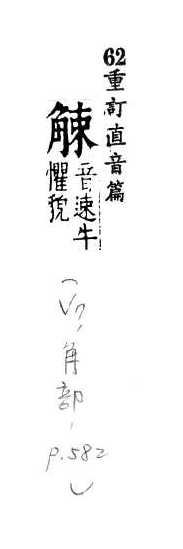 62重訂直音篇
觫音速牛
懼貌
(V7,角部,
p.582)